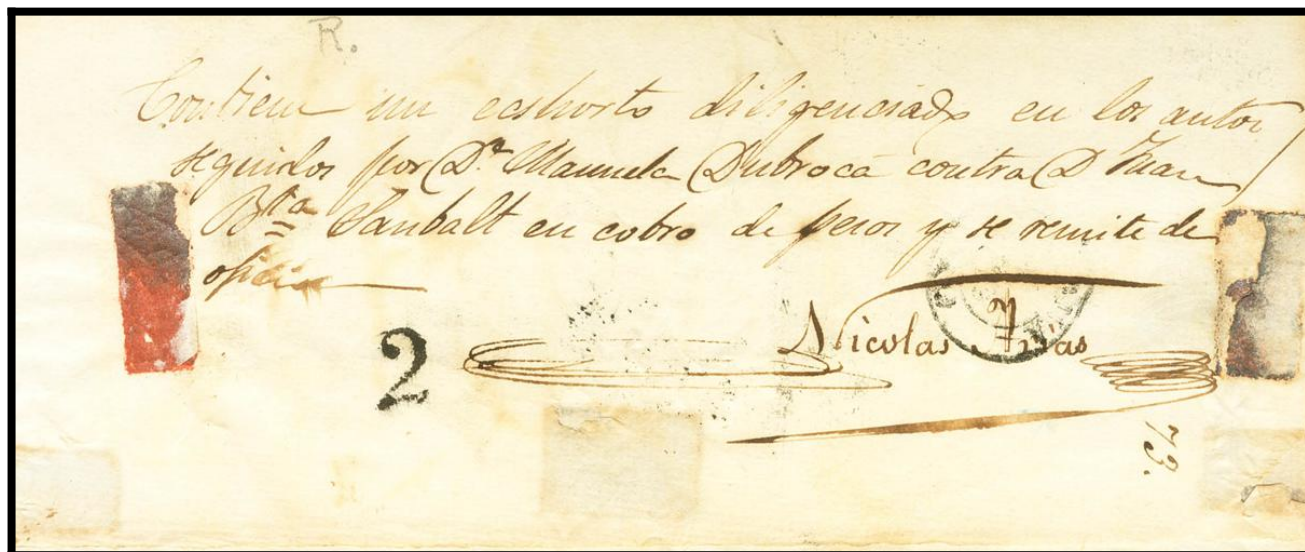 R.
Contiene un ecshorto diligenciado en los autos
seguidos por Dª Manuela Dubroca contra D Juan
Bta Saubalt en cobro de pesos y se remite de
oficio
2
Nicolas Arias
73.